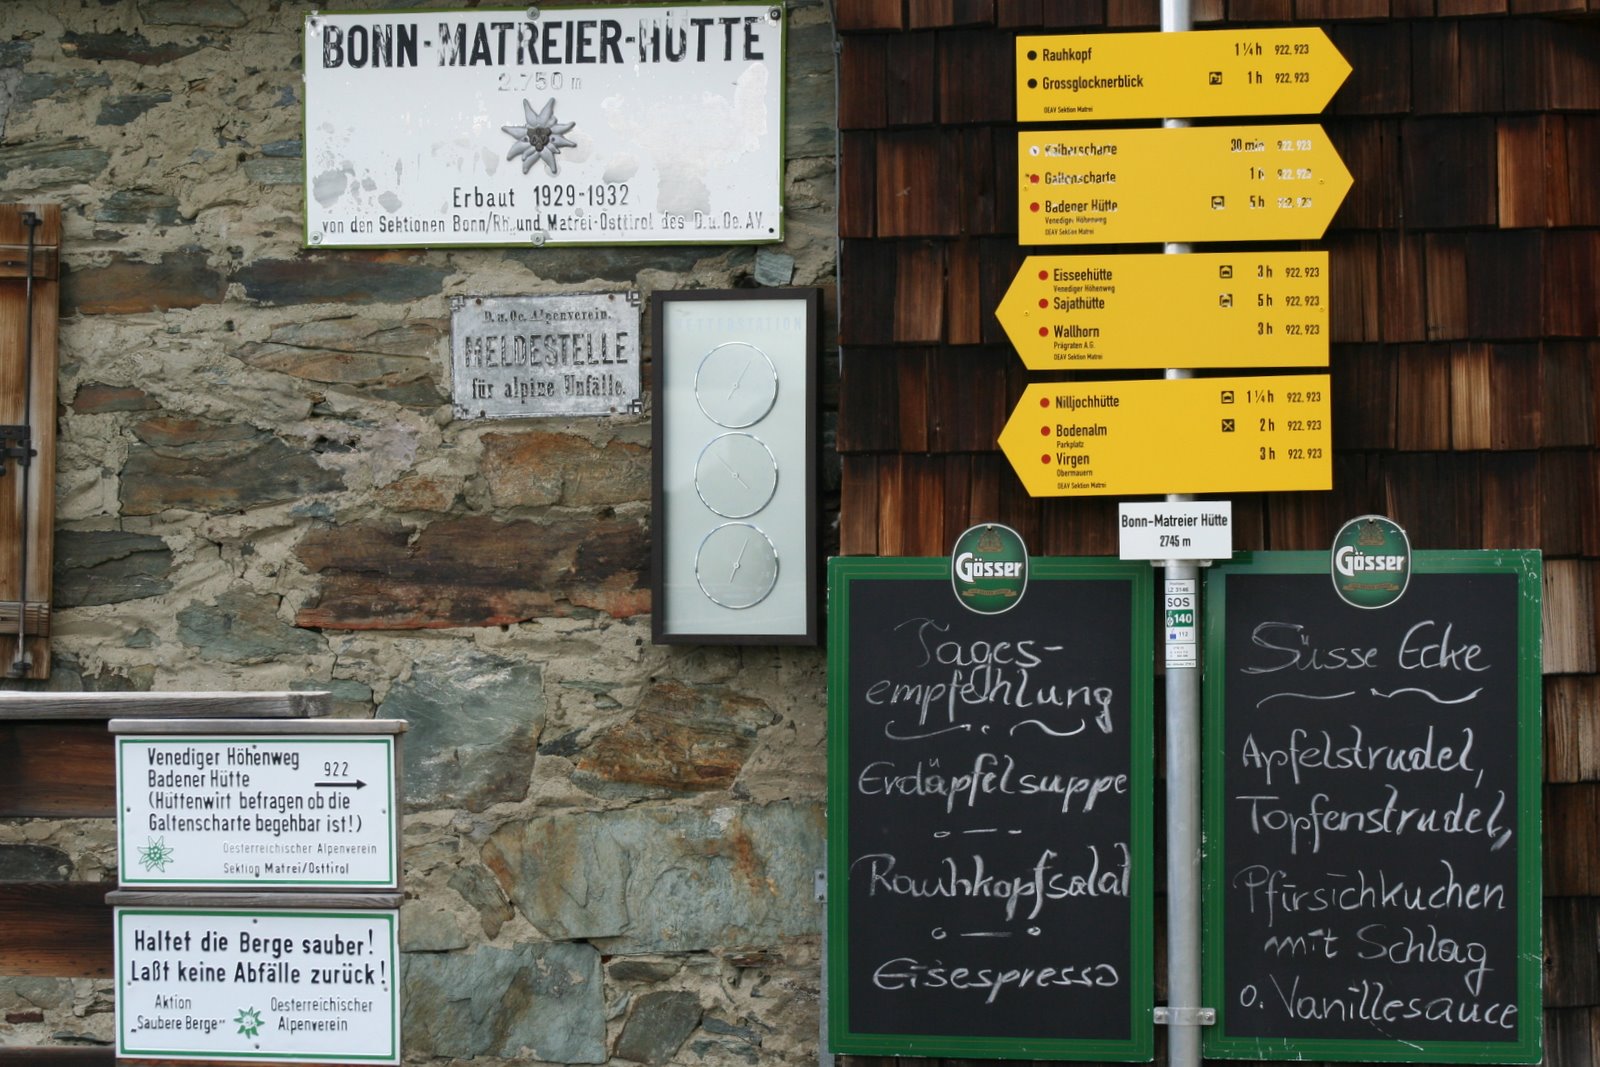 BONN-MATREIER-HÜTTE
2.750 m
Erbaut 1929-1932
von den Sektionen Bonn/Rh. und Matrei-Osttirol des D.u.Oe.AV.
D.u.Oe. Alpenverein.
MELDESTELLE
für alpine Unfälle.
WETTERSTATION
Venediger Höhenweg
Badener Hütte 922
(Hüttenwirt befragen ob die
Galtenscharte begehbar ist!)
Oesterreichischer Alpenverein
Sektion Matrei/Osttirol
Haltet die Berge sauber!
Laßt keine Abfälle zurück!
Aktion
„Saubere Berge"
Oesterreichischer
Alpenverein
Rauhkopf 1 ¼ h 922, 923
Grossglocknerblick 1 h 922, 923
OEAV Sektion Matrei
Kälberscharte 30 min 922, 923
Galtenscharte 1 h 922, 923
Badener Hütte 5 h 922, 923
Venediger Höhenweg
OEAV Sektion Matrei
Eisseehütte 3 h 922, 923
Venediger Höhenweg
Sajathütte 5 h 922, 923
Wallhorn 3 h 922, 923
Prägraten A.G.
OEAV Sektion Matrei
Nilljochhütte 1 ¼ h 922, 923
Bodenalm 2 h 922, 923
Parkplatz
Virgen 3 h 922, 923
Obermauern
OEAV Sektion Matrei
Bonn-Matreier Hütte
2745 m
SOS
140
112
Gösser
Tages-
empfehlung
Erdäpfelsuppe
Rauhkopfsalat
Eisespresso
Gösser
Süsse Ecke
Apfelstrudel,
Topfenstrudel,
Pfirsichkuchen
mit Schlag
o. Vanillesauce